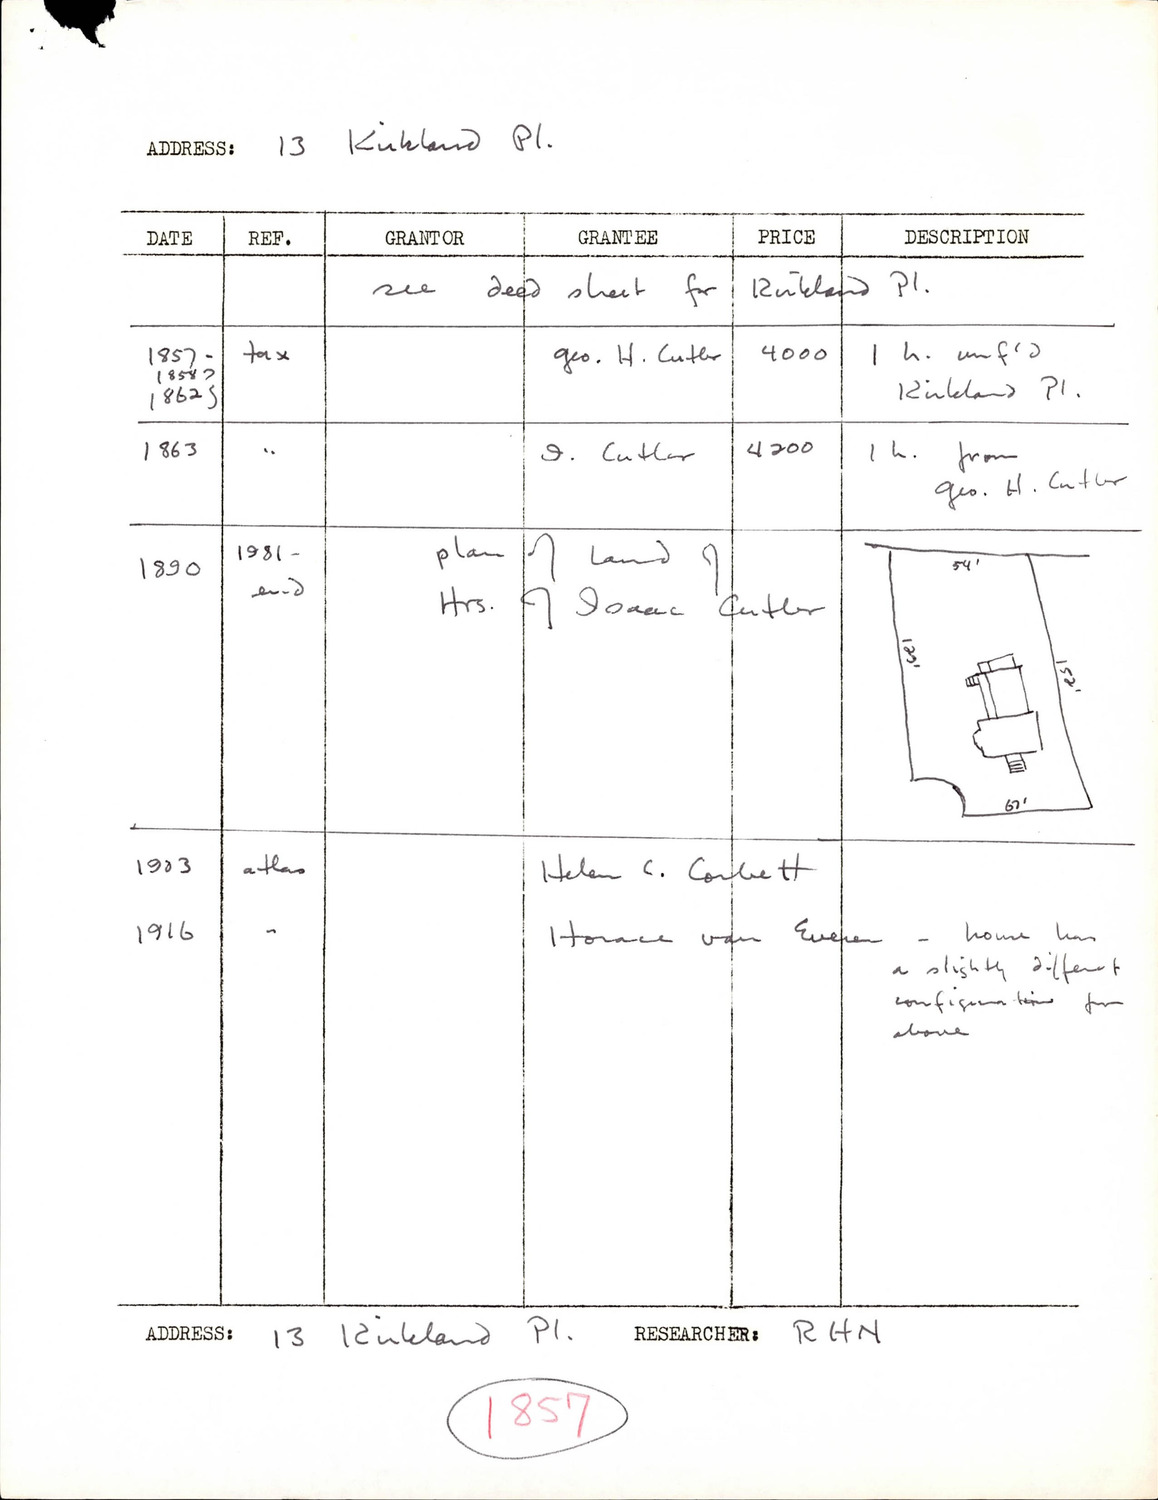 ADDRESS: 13 Kirkland Pl.
DATE REF. GRANTOR GRANTEE PRICE DESCRIPTION
see deed sheet for Kirkland Pl.
1857- tax geo. H. Cutler 4000 1 h. unf'd
1858?
1862 Kirkland Pl.
1863 " I. Cutler 4200 1 h. from
geo. H. Cutler
1890 1981- plan of Land of
end Hrs. of Isaac Cutler
54'
152'
67'
1903 atlas Helen C. Corbett
1916 " Horace van Everen - house has
a slightly different
configuration from
above
ADDRESS: 13 Kirkland Pl. RESEARCHER: RHN
1857